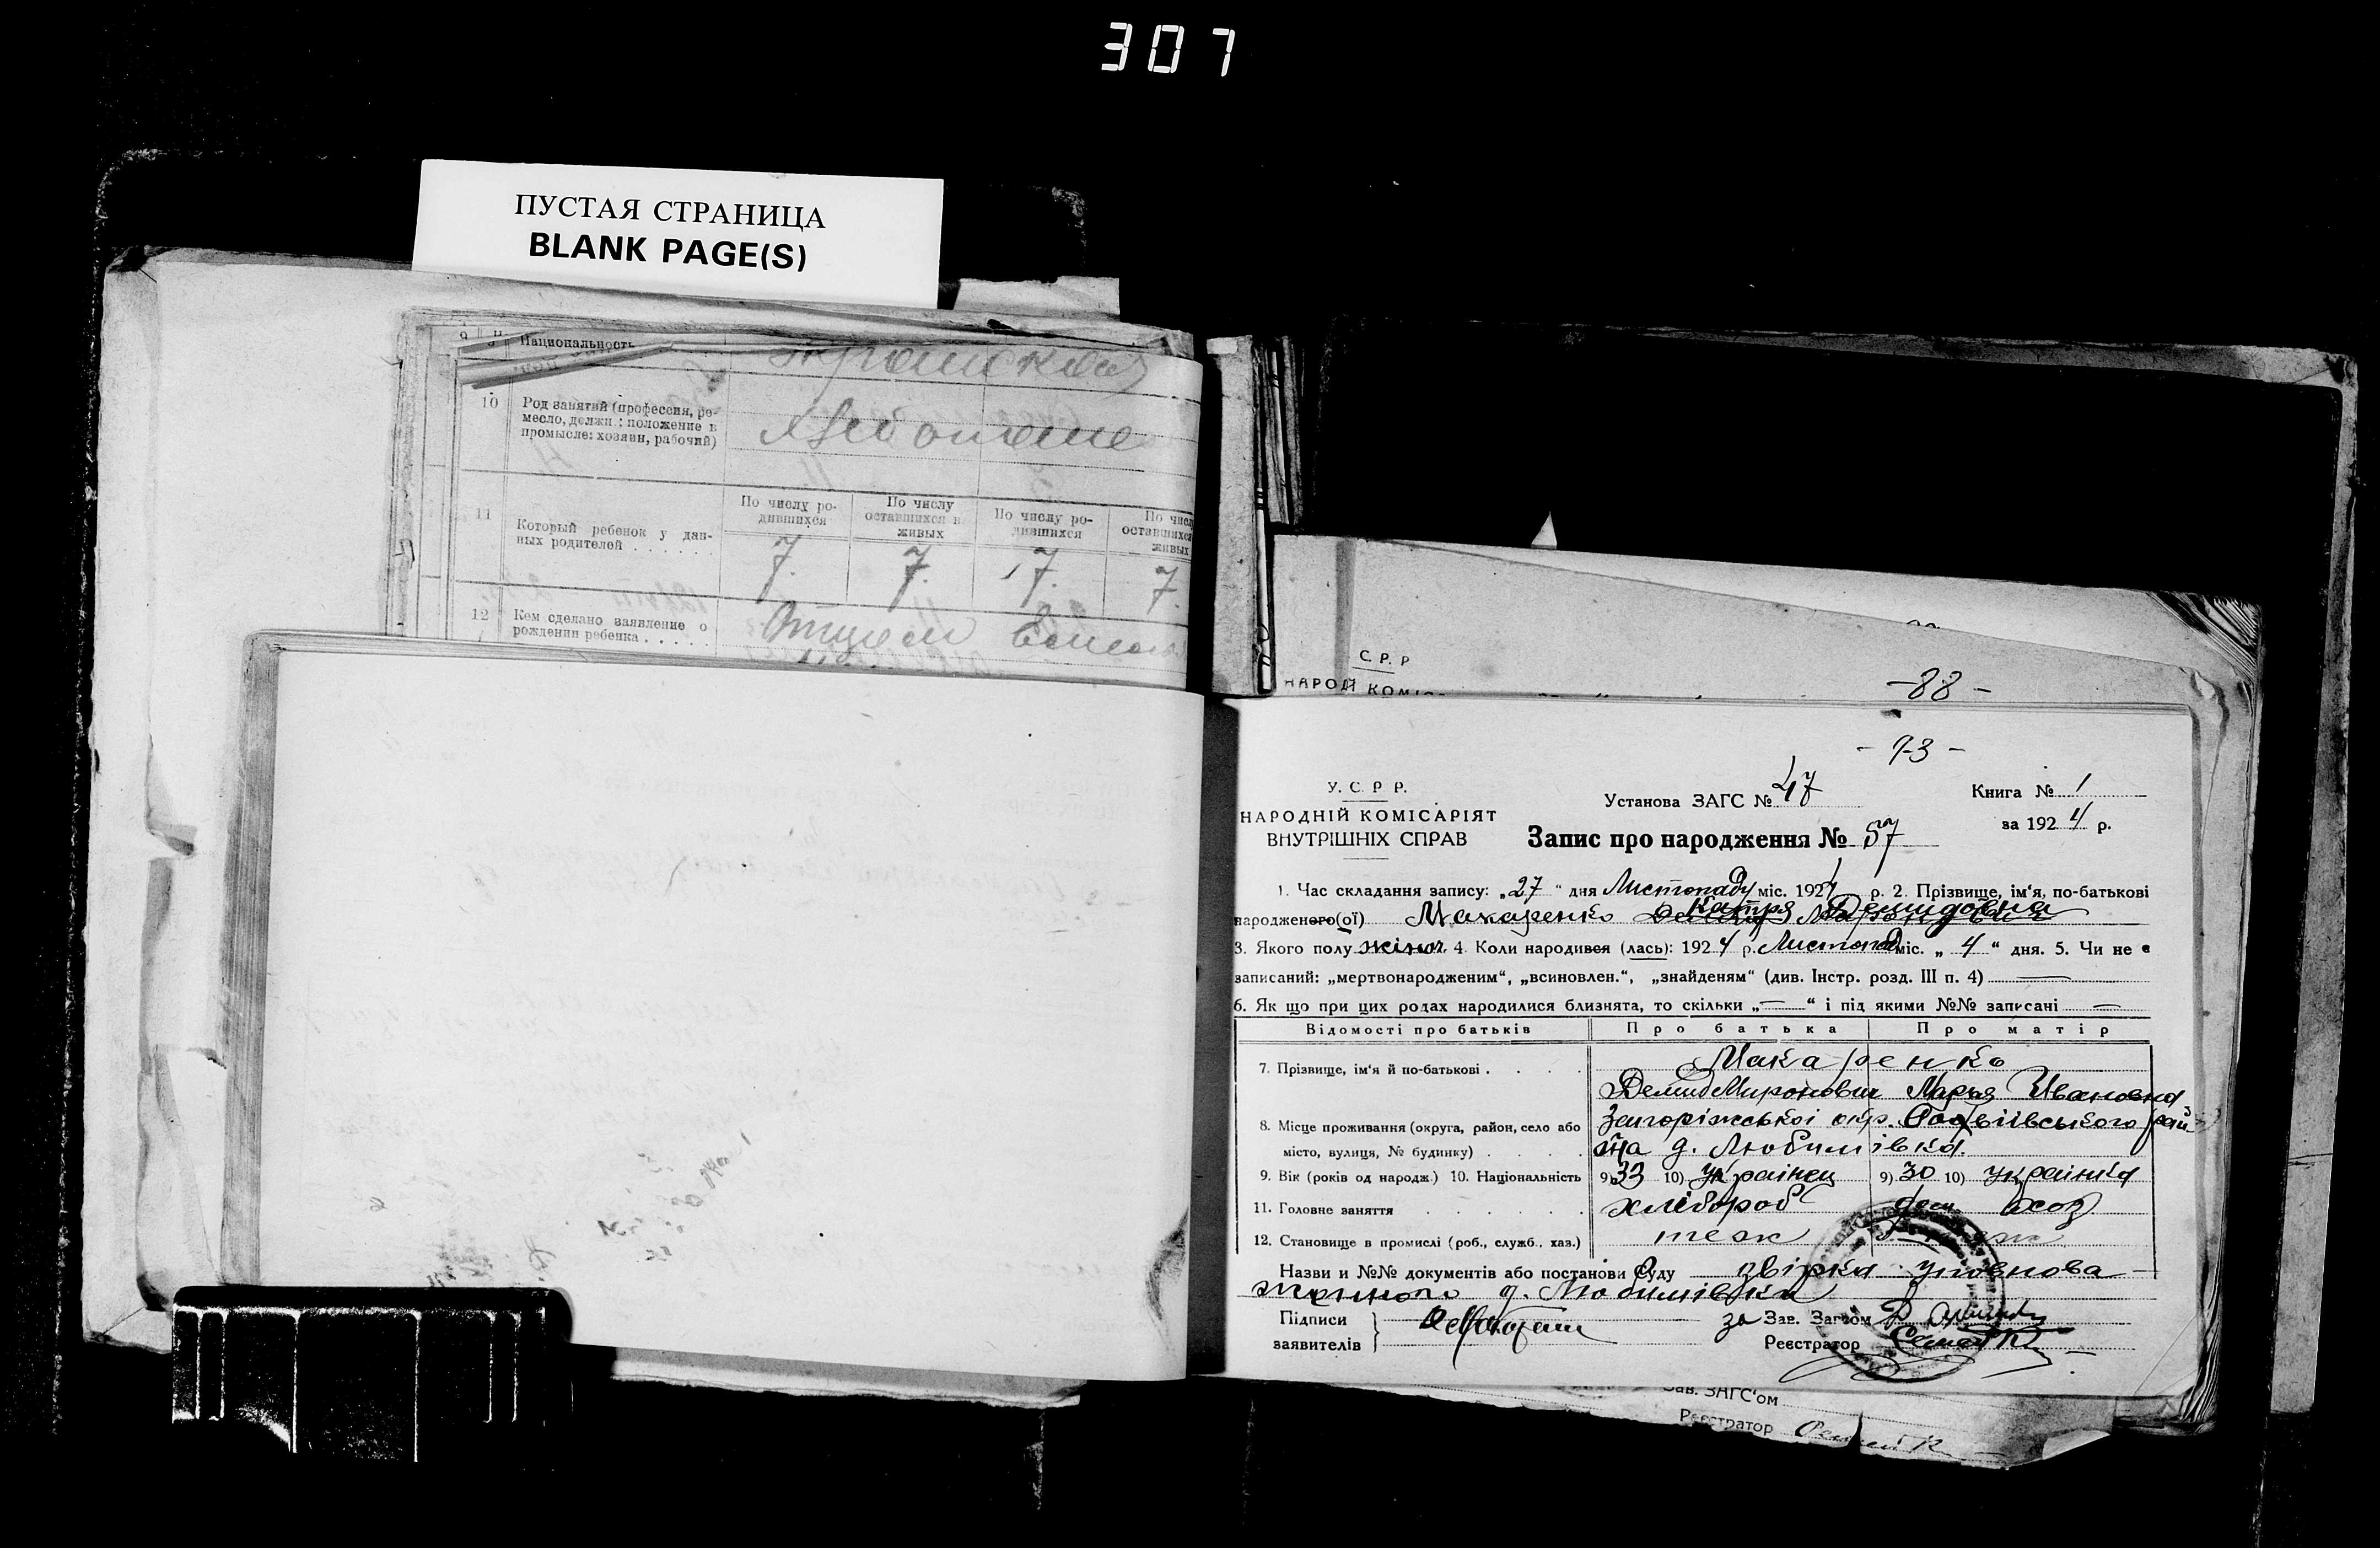 307
ПУСТАЯ СТРАНИЦА
BLANK PAGE(S)
9 Национальность
10 Род занятий (профессия, ре-
месло, должн.: положение в
промысле: хозяин, рабочий)
11 Который ребенок у дан-
ных родителей
По числу ро-
дившихся
По числу
оставшихся в
живых
По числу ро-
дившихся
По числ
оставшихся
живых
7. 7. 7. 7.
12 Кем сделано заявление о
рождении ребенка
Отцем
С. Р. Р
НАРОД КОМІС
-88-
- 93 -
У. С. Р. Р.
НАРОДНІЙ КОМІСАРІЯТ
ВНУТРІШНІХ СПРАВ
Установа ЗАГС № 47
Книга № 1
за 1924 р.
Запис про народження № 57
1. Час складання запису: „27" дня Листопаду міс. 1924 р. 2. Прізвище, ім'я, по-батькові
народженого(ої) Макаренко Катря Демидовна
3. Якого полу жіноч. 4. Коли народився (лась): 1924 р. Листопад міс. „4" дня. 5. Чи не є
записаний: „мертвонародженим", „всиновлен.", „знайденям" (див. Інстр. розд. III п. 4)
6. Як що при цих родах народилися близнята, то скільки „—" і під якими №№ записані —
Відомості про батьків Про батька Про матір
7. Прізвище, ім'я й по-батькові Макаренко
Демид Миронович Марья Ивановна
8. Місце проживання (округа, район, село або
місто, вулиця, № будинку)
Запоріжської окр.
д. Любимівка.
9. Вік (років од народж.) 10. Національність 9) 33 10) Українец 9) 30 10) українка
11. Головне заняття хлібороб дом. хоз
12. Становище в промислі (роб., служб., хаз.) теж
Назви и №№ документів або постанови Суду звірка уповнова-
женного д. Любимівка
Підписи
заявителів
за Зав. Загсом
Реєстратор
Зав. ЗАГС'ом
Реєстратор